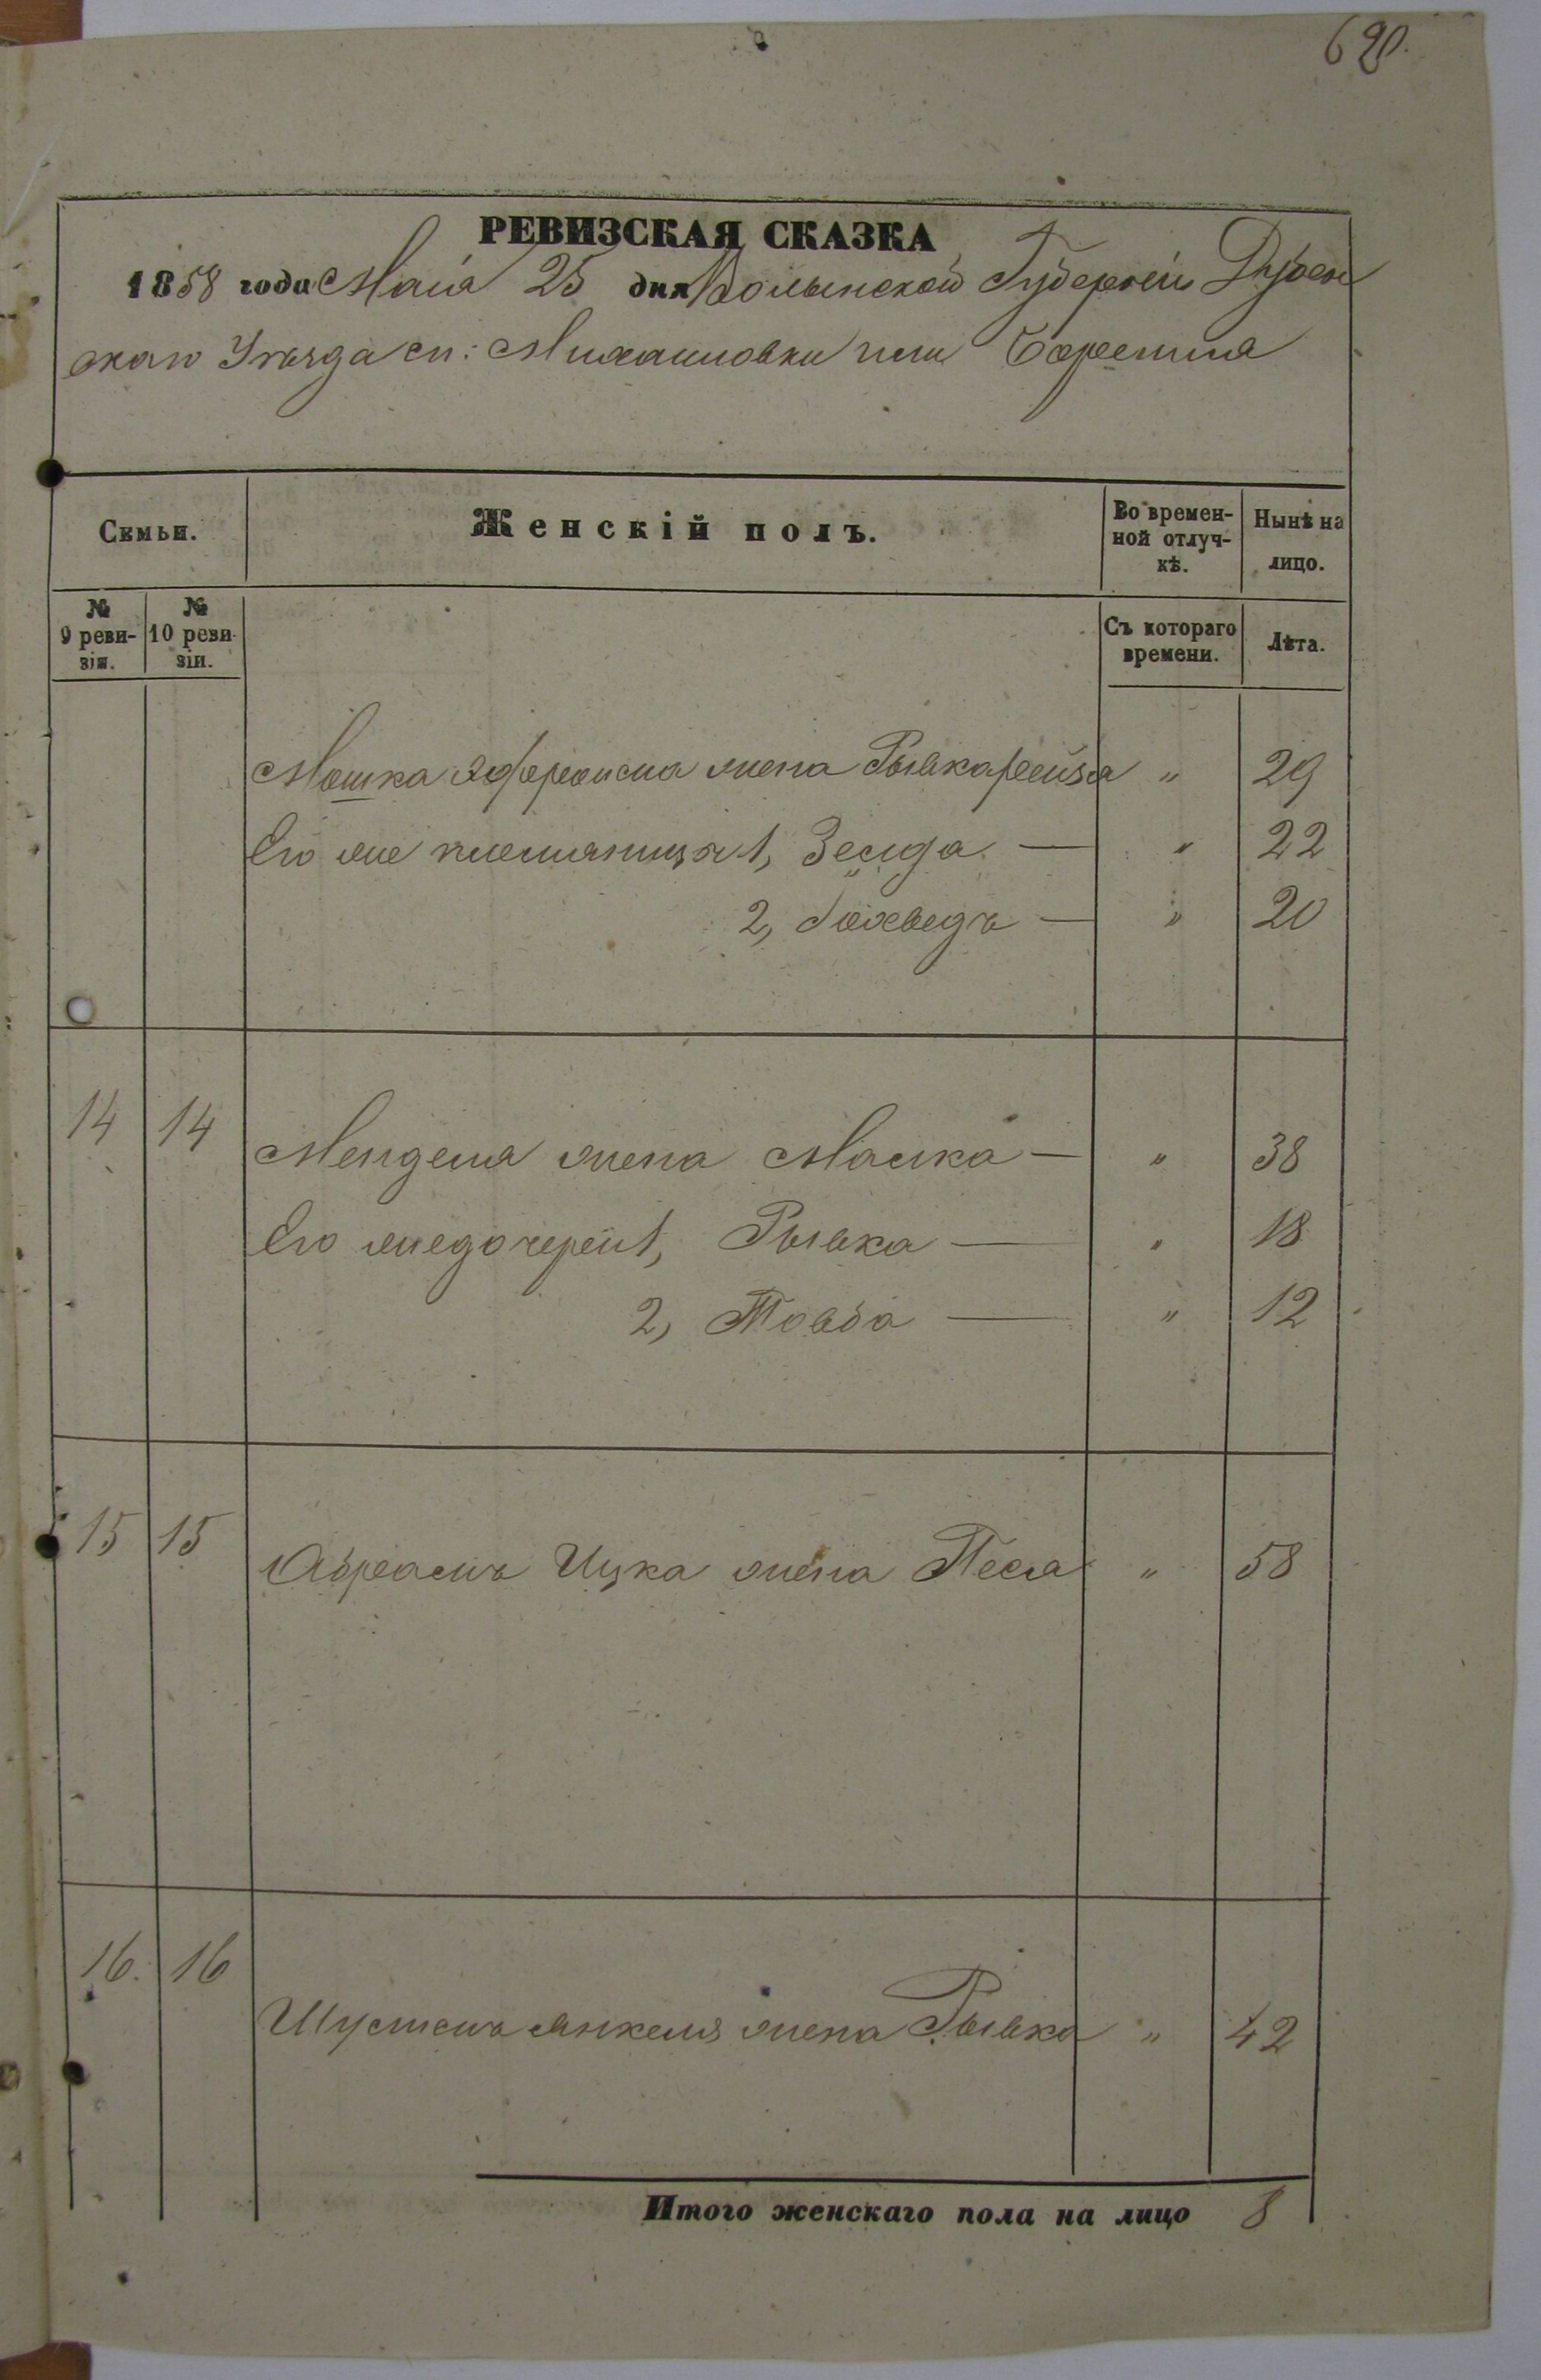 690.
РЕВИЗСКАЯ СКАЗКА
1858 года Маія 25 дня Волынской Губерніи Дубен
скаго Уѣзда см: Михаиловки или Боремля
Семьи.
Женскій полъ.
Во времен-
ной отлуч-
кѣ.
Нынѣ на
лицо.
№
9 реви-
зіи.
№
10 реви-
зіи.
Съ котораго
времени.
Лѣта.
Мошка жена Рывка Рейза " 29
Его же племянницы 1, Зелда — " 22
2, Іохведъ — " 20
14 14 Менделя жена Малка — " 38
Его же дочери 1, Рывка — " 18
2, Товба — " 12
15 15 Абрамъ Ицка жена Песя " 58
16. 16 Шустемъ Янкеля жена Рывка " 42
Итого женскаго пола на лицо 8